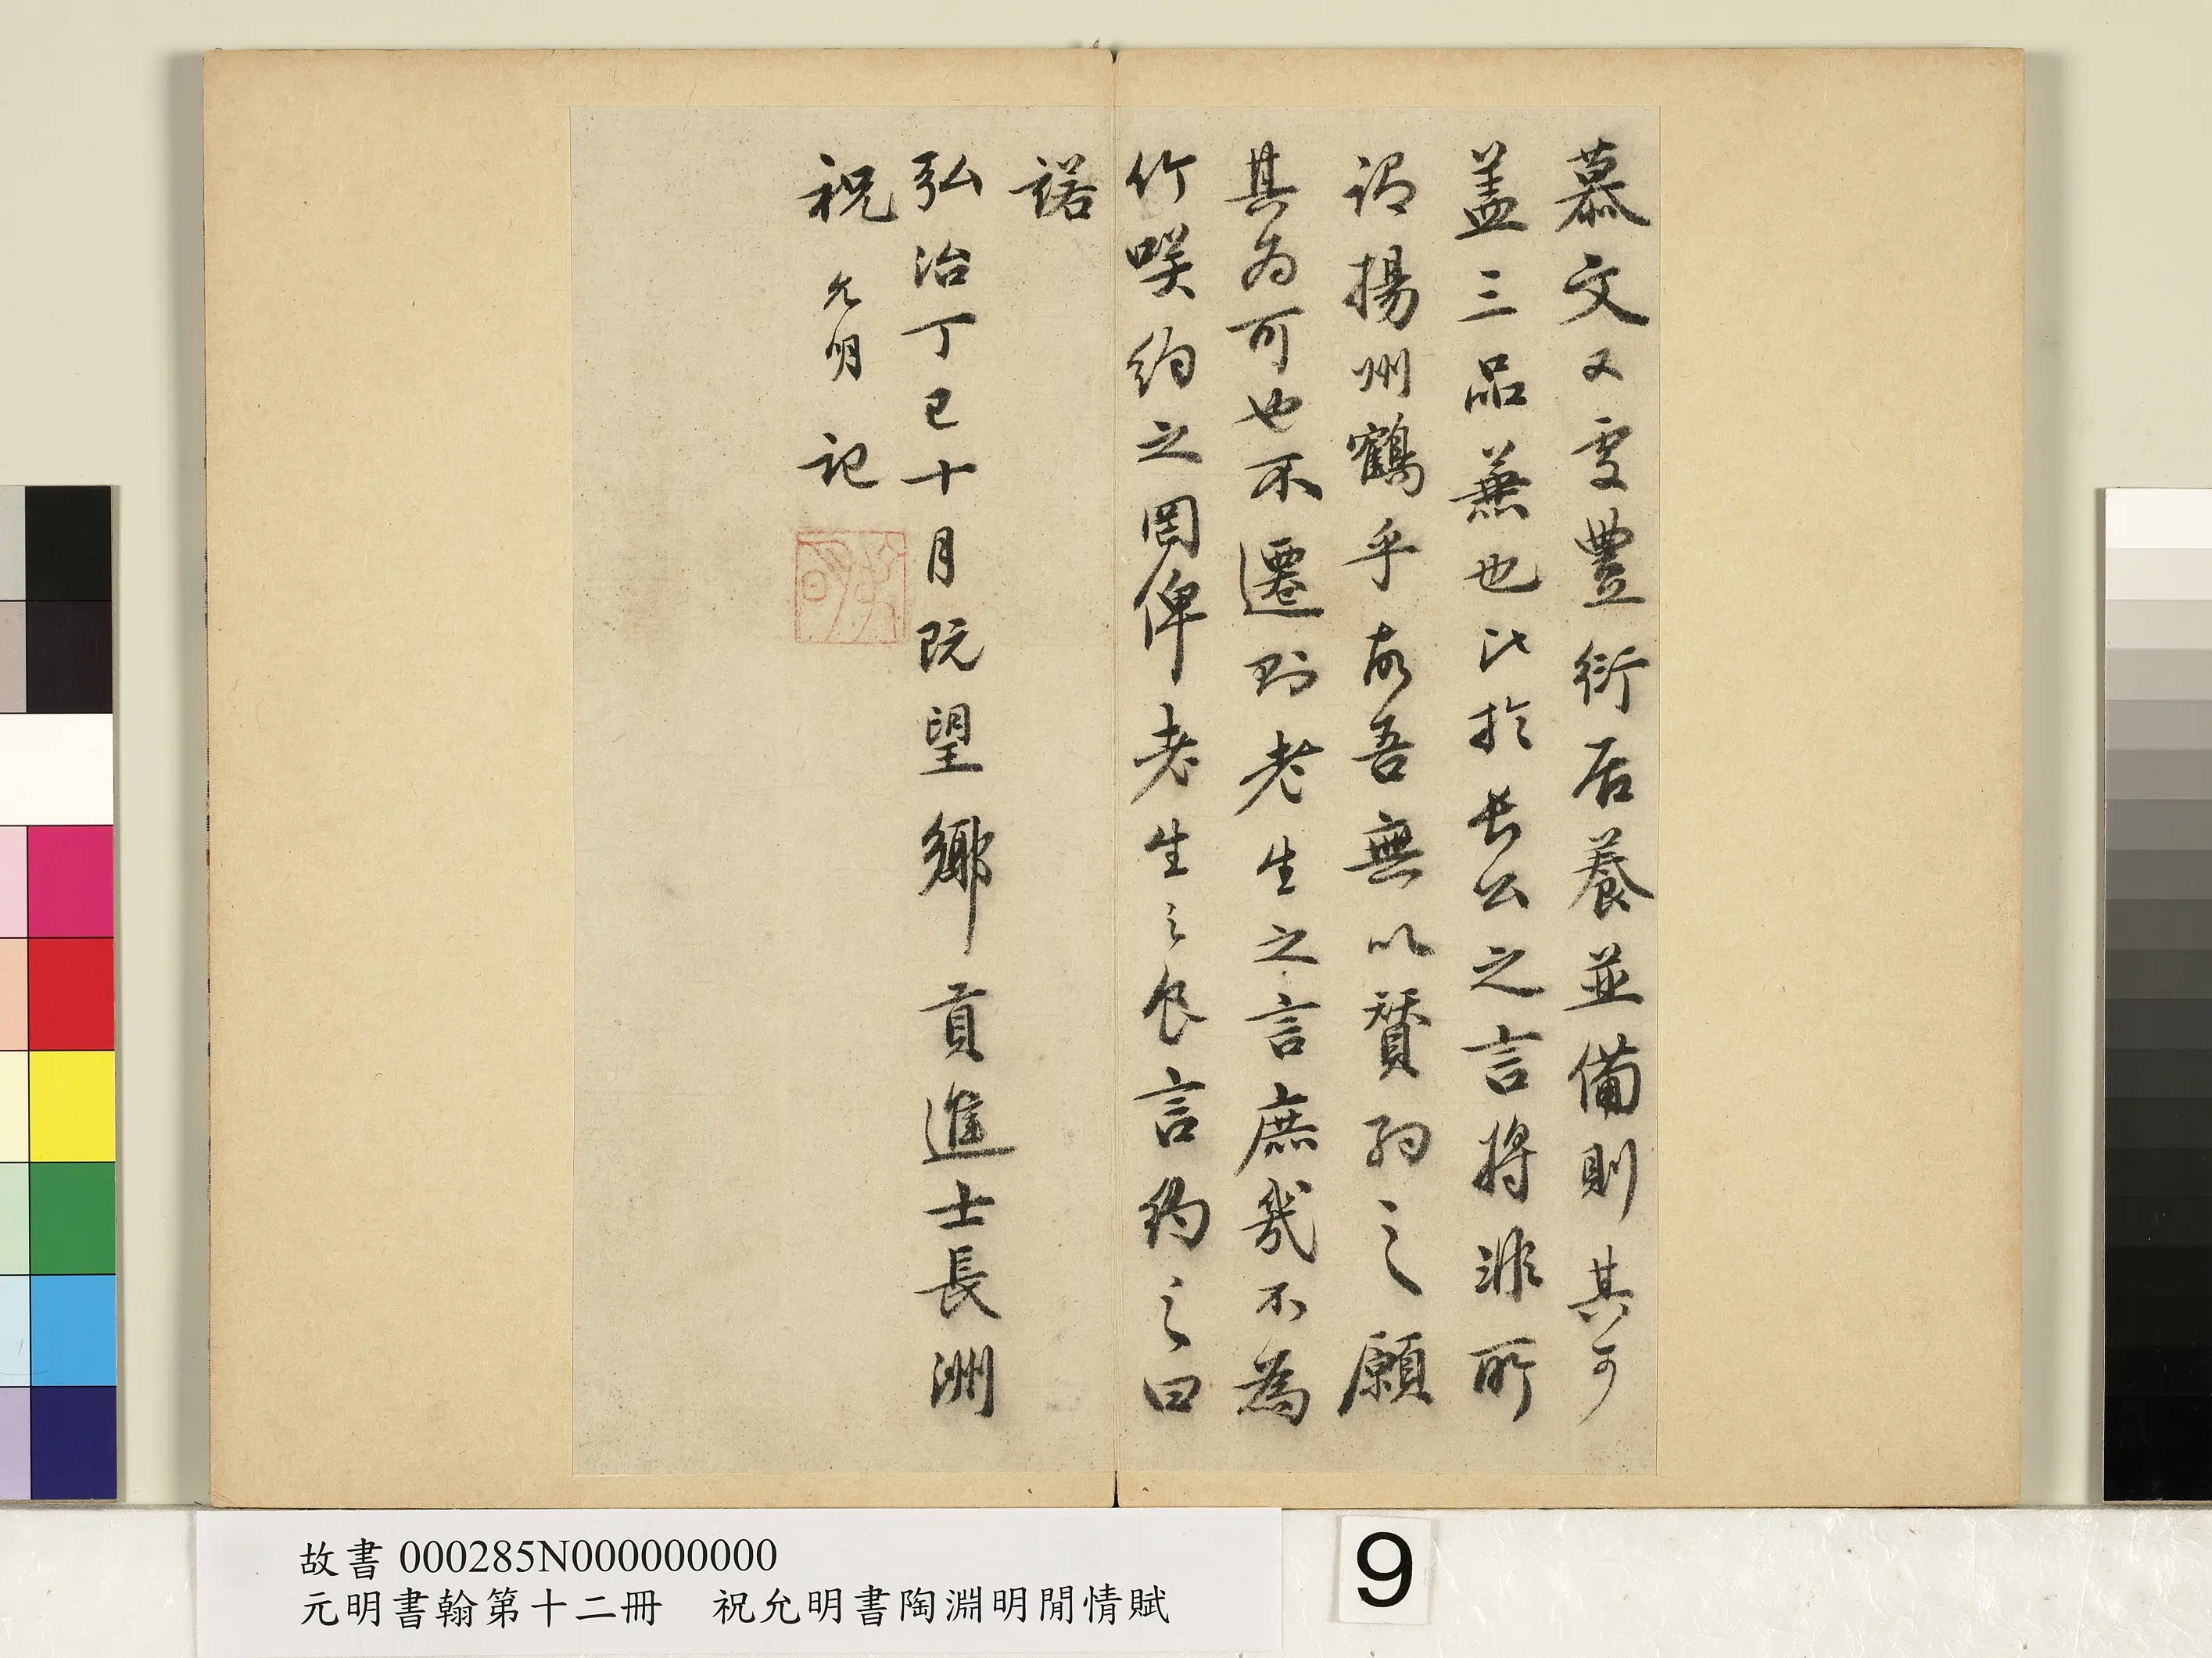 慕文又處豐衍居養並備則其可
蓋三品兼也比於長公之言將非所
謂揚州鶴乎故吾無以贊約之願
其為可也不遷則老生之言庶幾不為
竹咲約之罔俾老生之食言約之曰
諾
弘治丁巳十月既望鄉貢進士長洲
祝允明記
故書 000285N000000000
元明書翰第十二冊 祝允明書陶淵明閒情賦
9